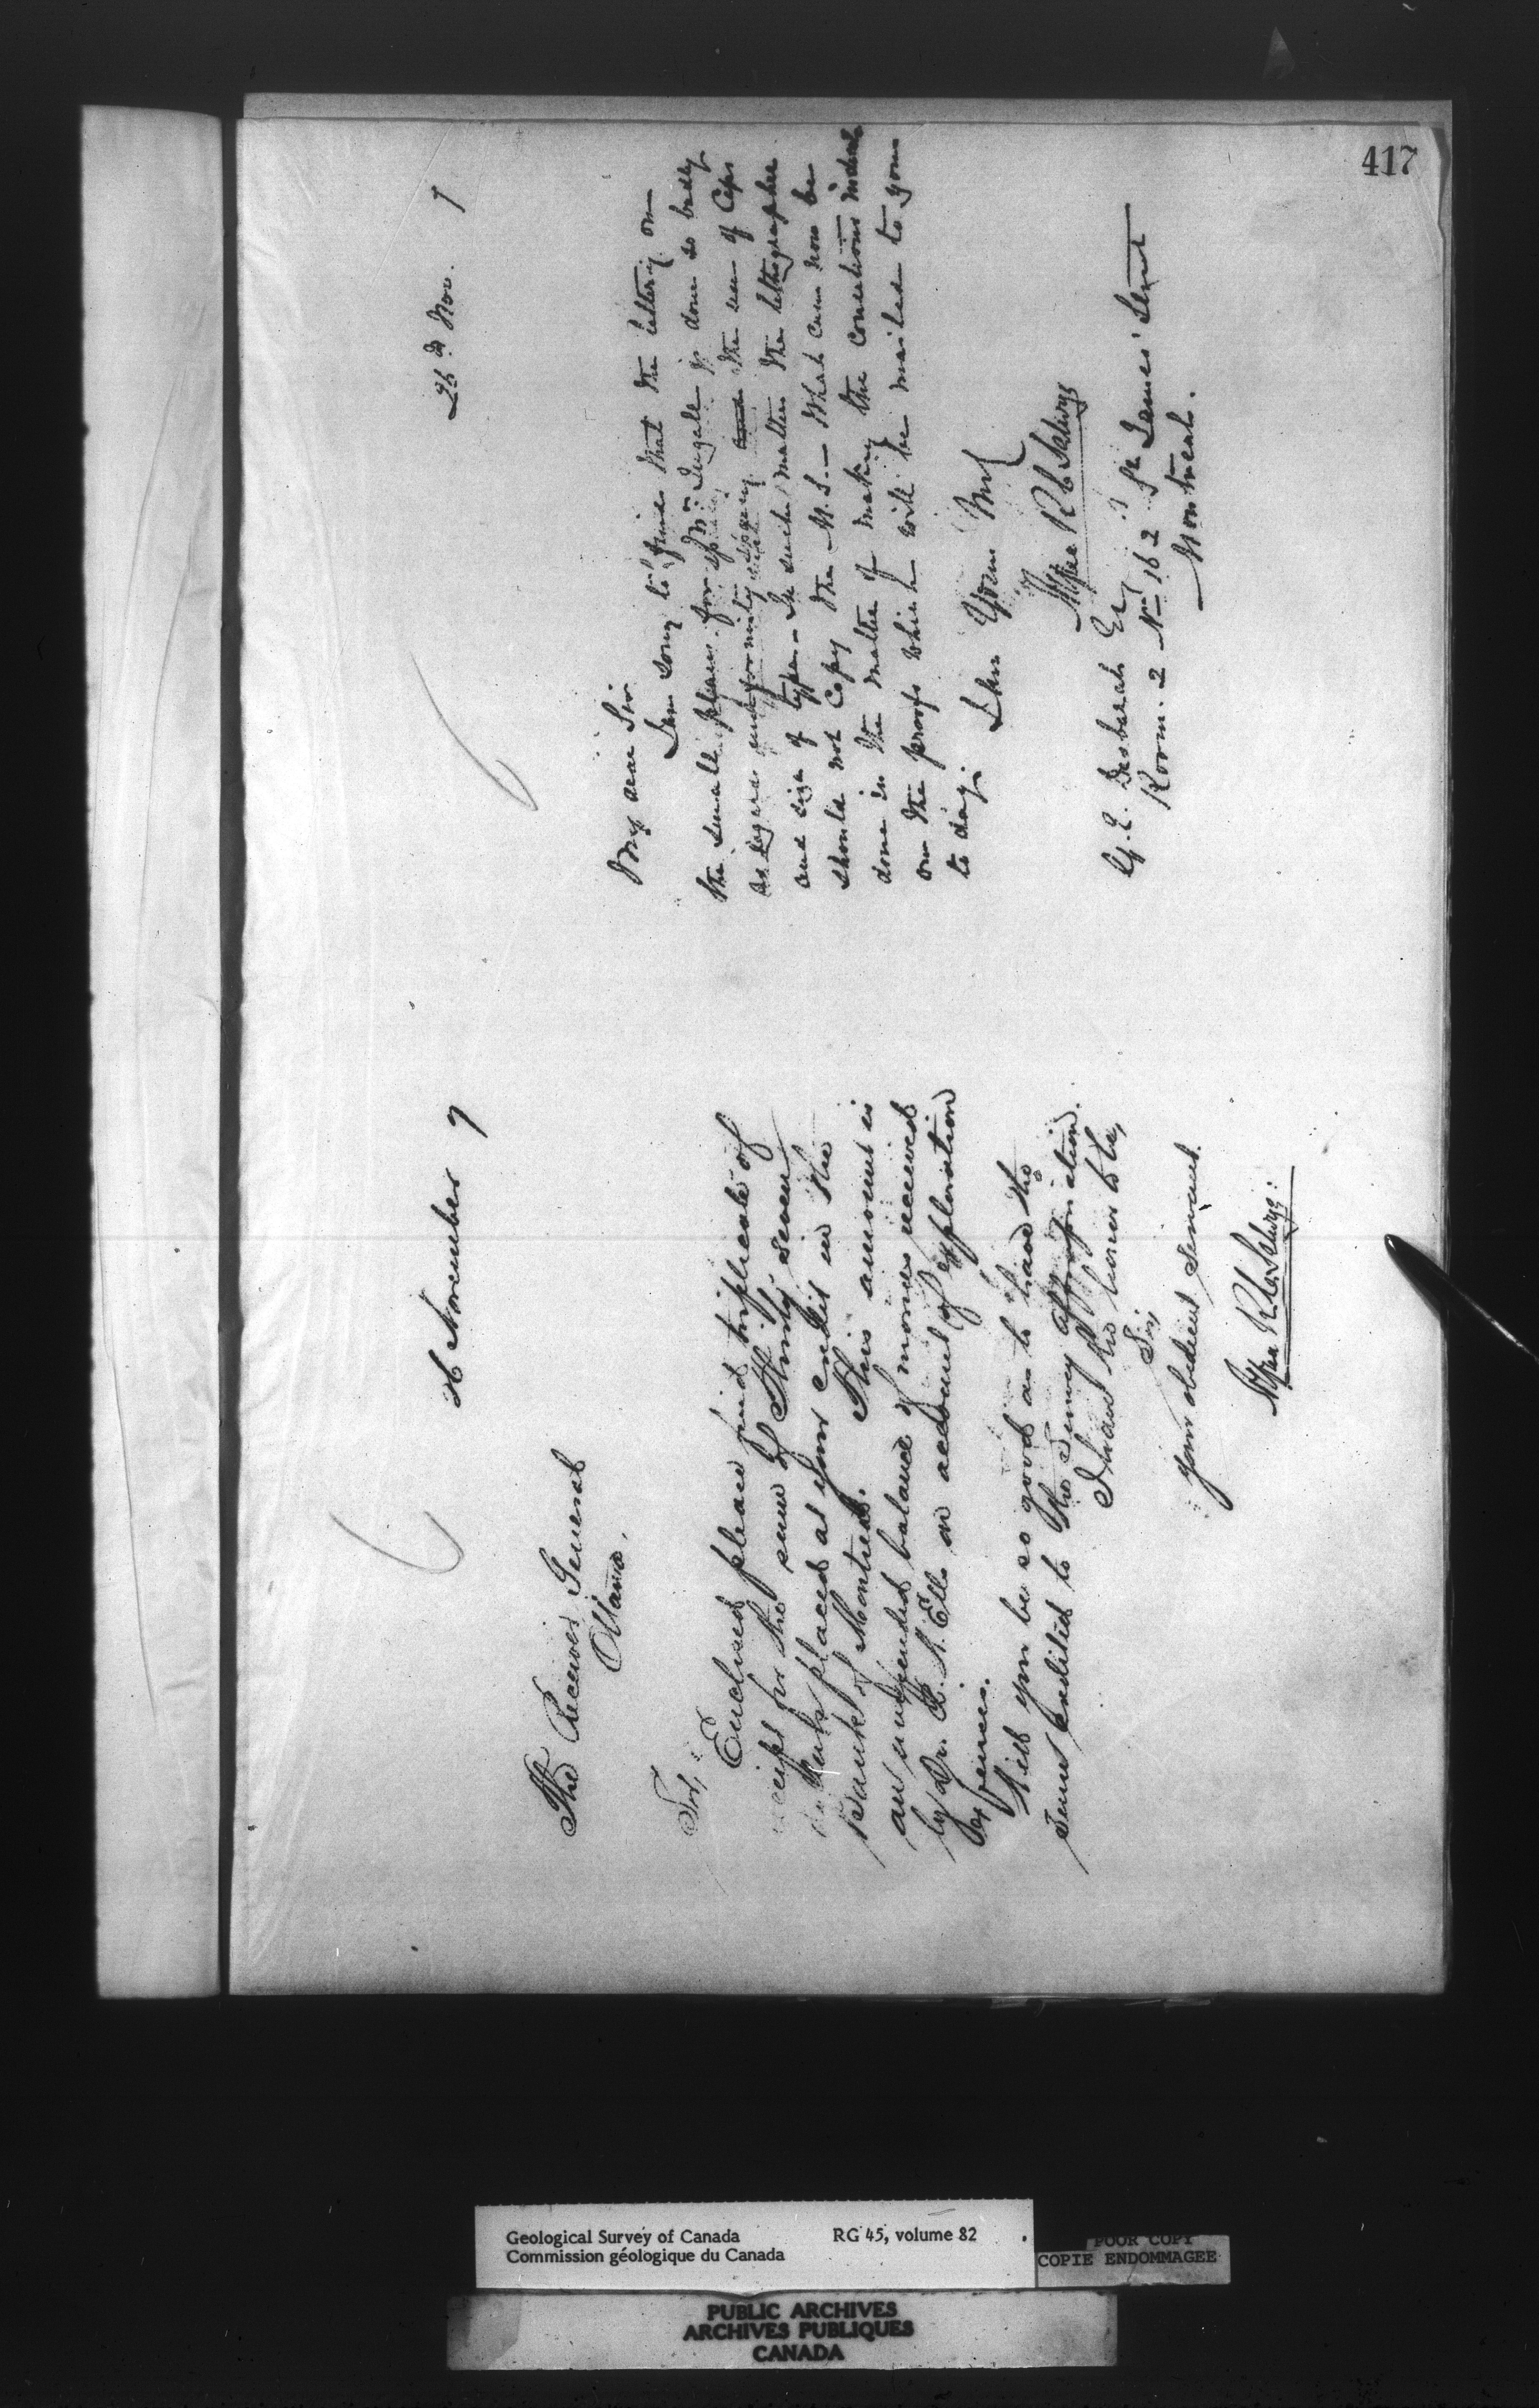 417
26 November 7
The Receiver General
Ottawa,
Sir,
Enclosed please find triplicate of
receipt for the sum of Thirty seven
placed at your credit in the
Bank of Montreal. This amount is
an unexpended balance of monies received
by Dr. R. W. Ells on account of exploration
expenses.
Will you be so good as to have the
same credited to the Survey appropriation.
I have the honor to be,
Sir,
Your obedient Servant.
Alfred R. C. Selwyn
26 Nov. 7
My dear Sir
I am sorry to find that the lettering on
the small plans for Mr. is done so badly
as regards uniformity the use of Caps
and size of type - In such matters the lithographer
should not copy the M.S. - What can now be
done in the matter of making the corrections
on the proofs which will be mailed to you
to day.
I am Yours truly
Alfred R C Selwyn
G. E. Desbarats Esq
Room. 2 No 162 St. James' Street
Montreal.
Geological Survey of Canada RG 45, volume 82
Commission géologique du Canada
POOR COPY
COPIE ENDOMMAGEE
PUBLIC ARCHIVES
ARCHIVES PUBLIQUES
CANADA